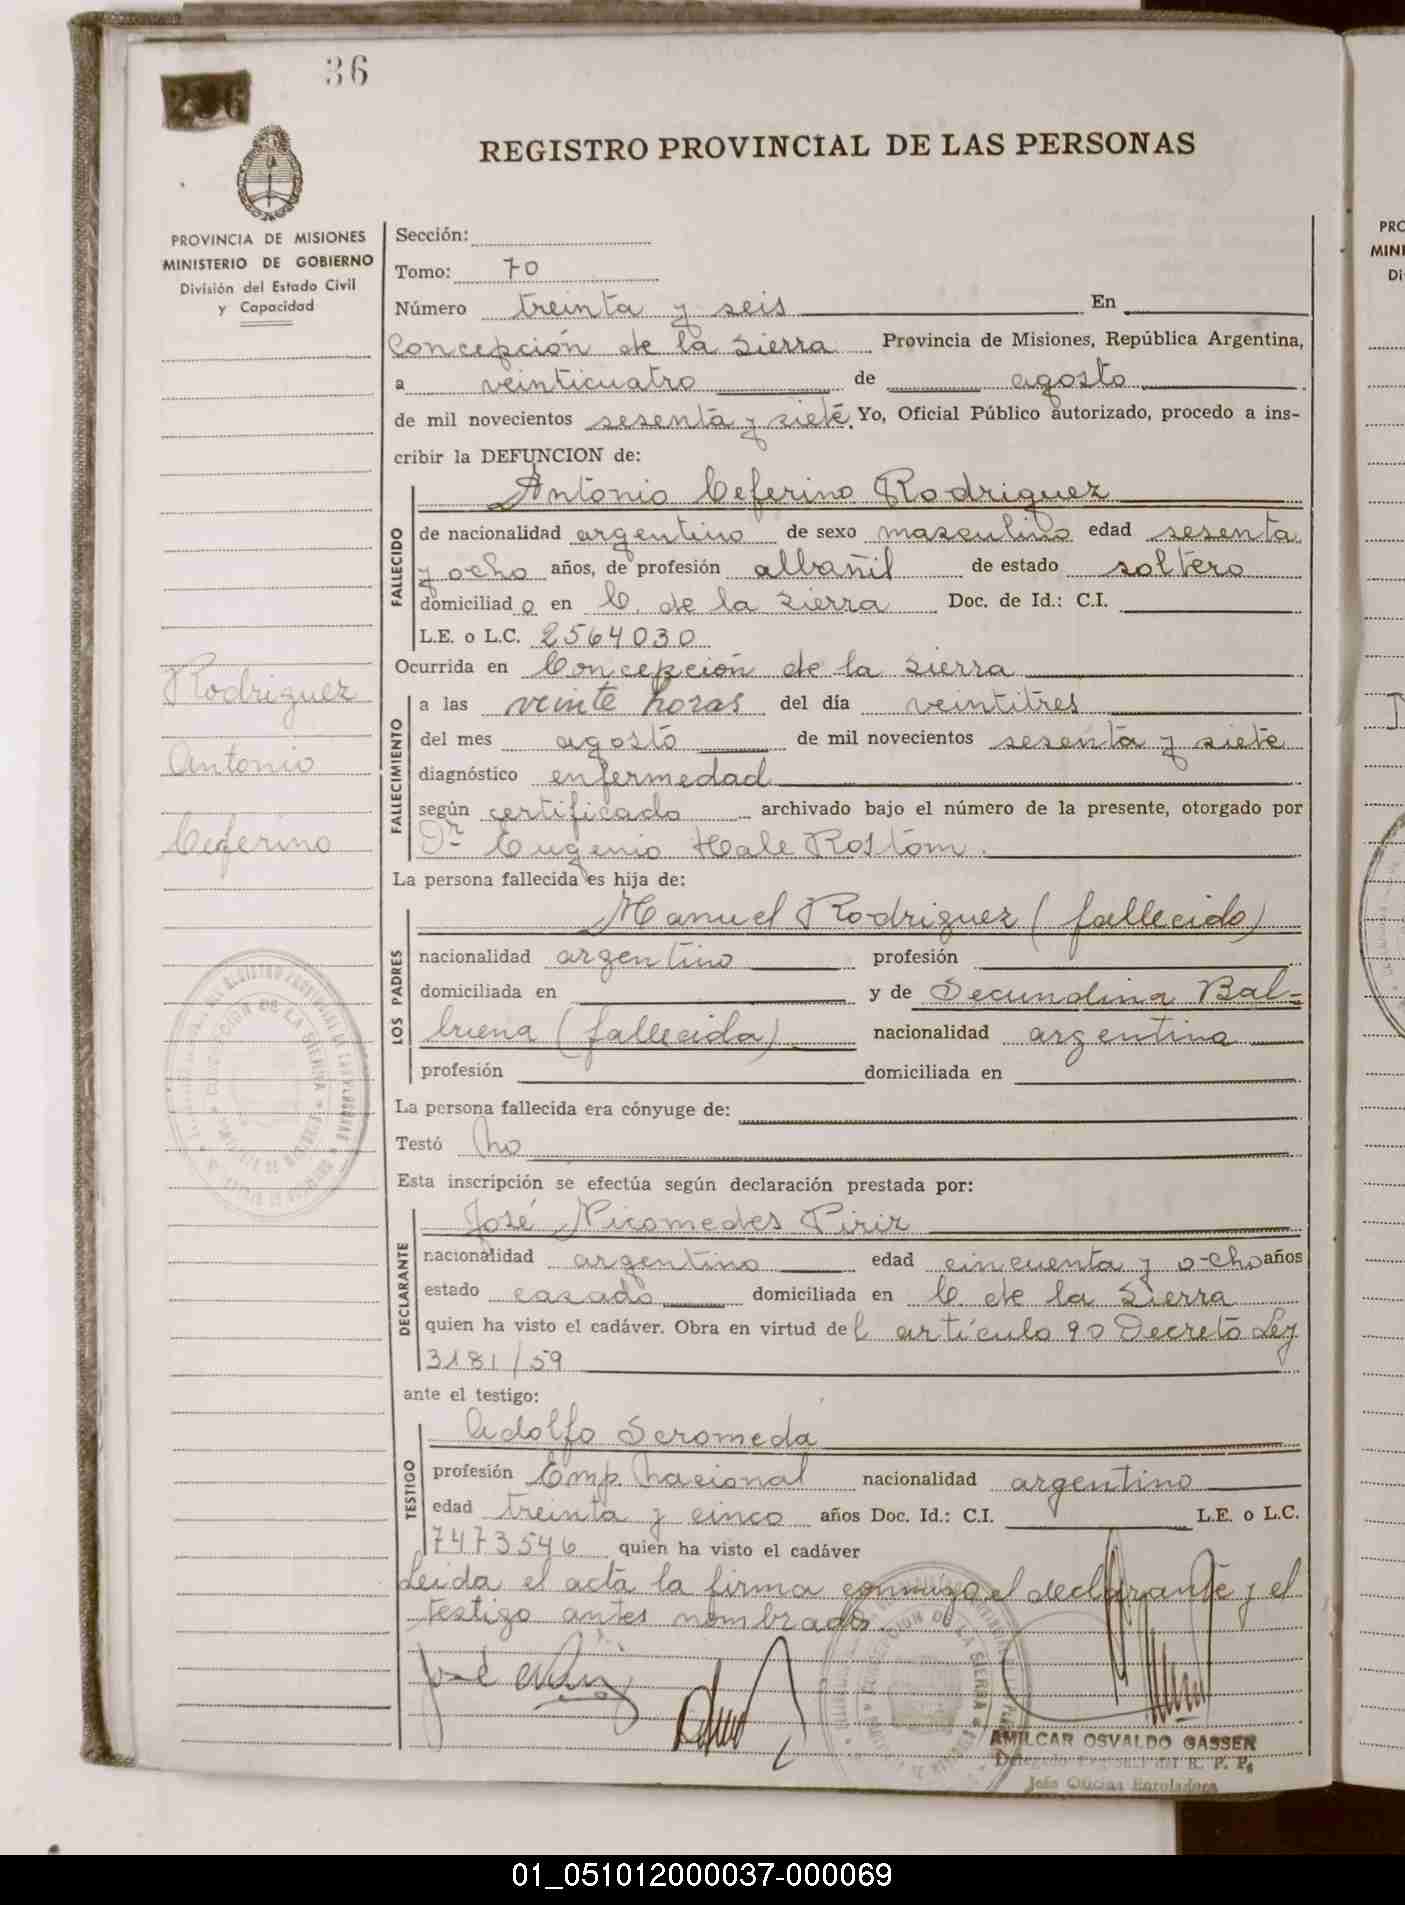 36
REGISTRO PROVINCIAL DE LAS PERSONAS
PROVINCIA DE MISIONES
MINISTERIO DE GOBIERNO
División del Estado Civil
y Capacidad
Sección:
Tomo: 70
Número treinta y seis En
Concepción de la Sierra Provincia de Misiones, República Argentina,
a veinticuatro de agosto
de mil novecientos sesenta y siete. Yo, Oficial Público autorizado, procedo a ins-
cribir la DEFUNCION de:
FALLECIDO
Antonio Ceferino Rodriguez
de nacionalidad argentino de sexo masculino edad sesenta
y ocho años, de profesión albañil de estado soltero
domiciliado en C. de la Sierra Doc. de Id.: C.I.
L.E. o L.C. 2564030
Ocurrida en Concepción de la Sierra
FALLECIMIENTO
a las veinte horas del día veintitres
del mes agosto de mil novecientos sesenta y siete
diagnóstico enfermedad
según certificado archivado bajo el número de la presente, otorgado por
Dr. Eugenio Hale Rostom.
Rodriguez
Antonio
Ceferino
La persona fallecida es hija de:
LOS PADRES
Manuel Rodriguez (fallecido)
nacionalidad argentino profesión
domiciliada en y de Secundina Bal-
buena (fallecida) nacionalidad argentina
profesión domiciliada en
La persona fallecida era cónyuge de:
Testó no
Esta inscripción se efectúa según declaración prestada por:
DECLARANTE
José Nicomedes Piriz
nacionalidad argentino edad cincuenta y ocho años
estado casado domiciliada en C. de la Sierra
quien ha visto el cadáver. Obra en virtud del artículo 90 Decreto Ley
3181/59
ante el testigo:
TESTIGO
Adolfo Seromeda
profesión Emp. Nacional nacionalidad argentino
edad treinta y cinco años Doc. Id.: C.I. L.E. o L.C.
7473546 quien ha visto el cadáver
Leida el acta la firma conmigo el declarante y el
testigo antes nombrado.
AMILCAR OSVALDO GASSEN
Delegado Regional del R. P. P.
Jefe Oficina Enroladora
PRO
MINI
Di
01_051012000037-000069